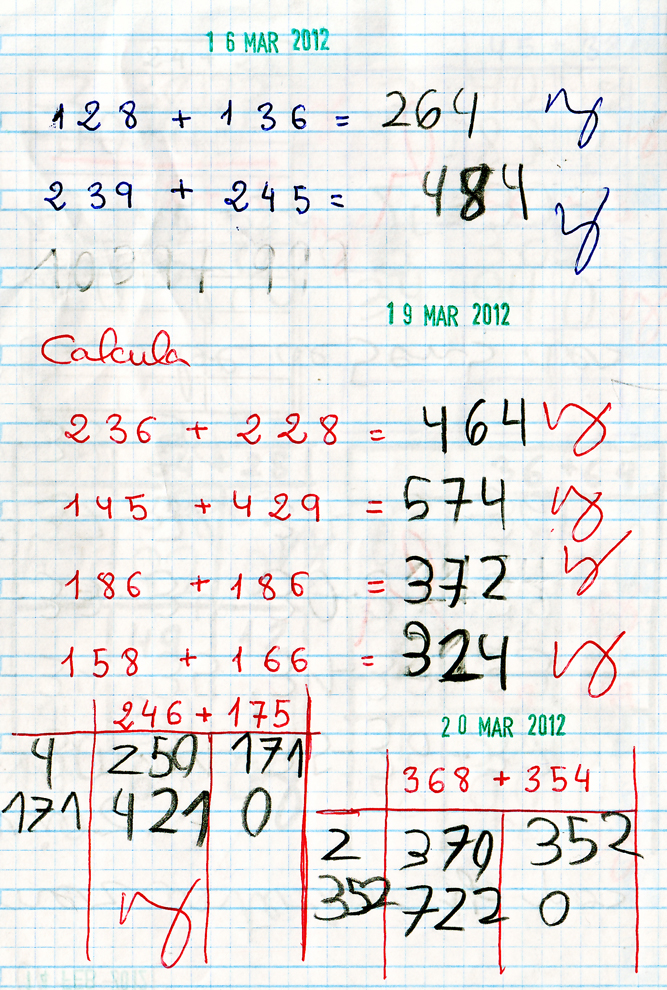 16 MAR 2012
128 + 136 = 264
239 + 245 = 484
19 MAR 2012
Calcula
236 + 228 = 464
145 + 429 = 574
186 + 186 = 372
158 + 166 = 324
246 + 175
4 250 171
171 421 0
20 MAR 2012
368 + 354
2 370 352
352 722 0